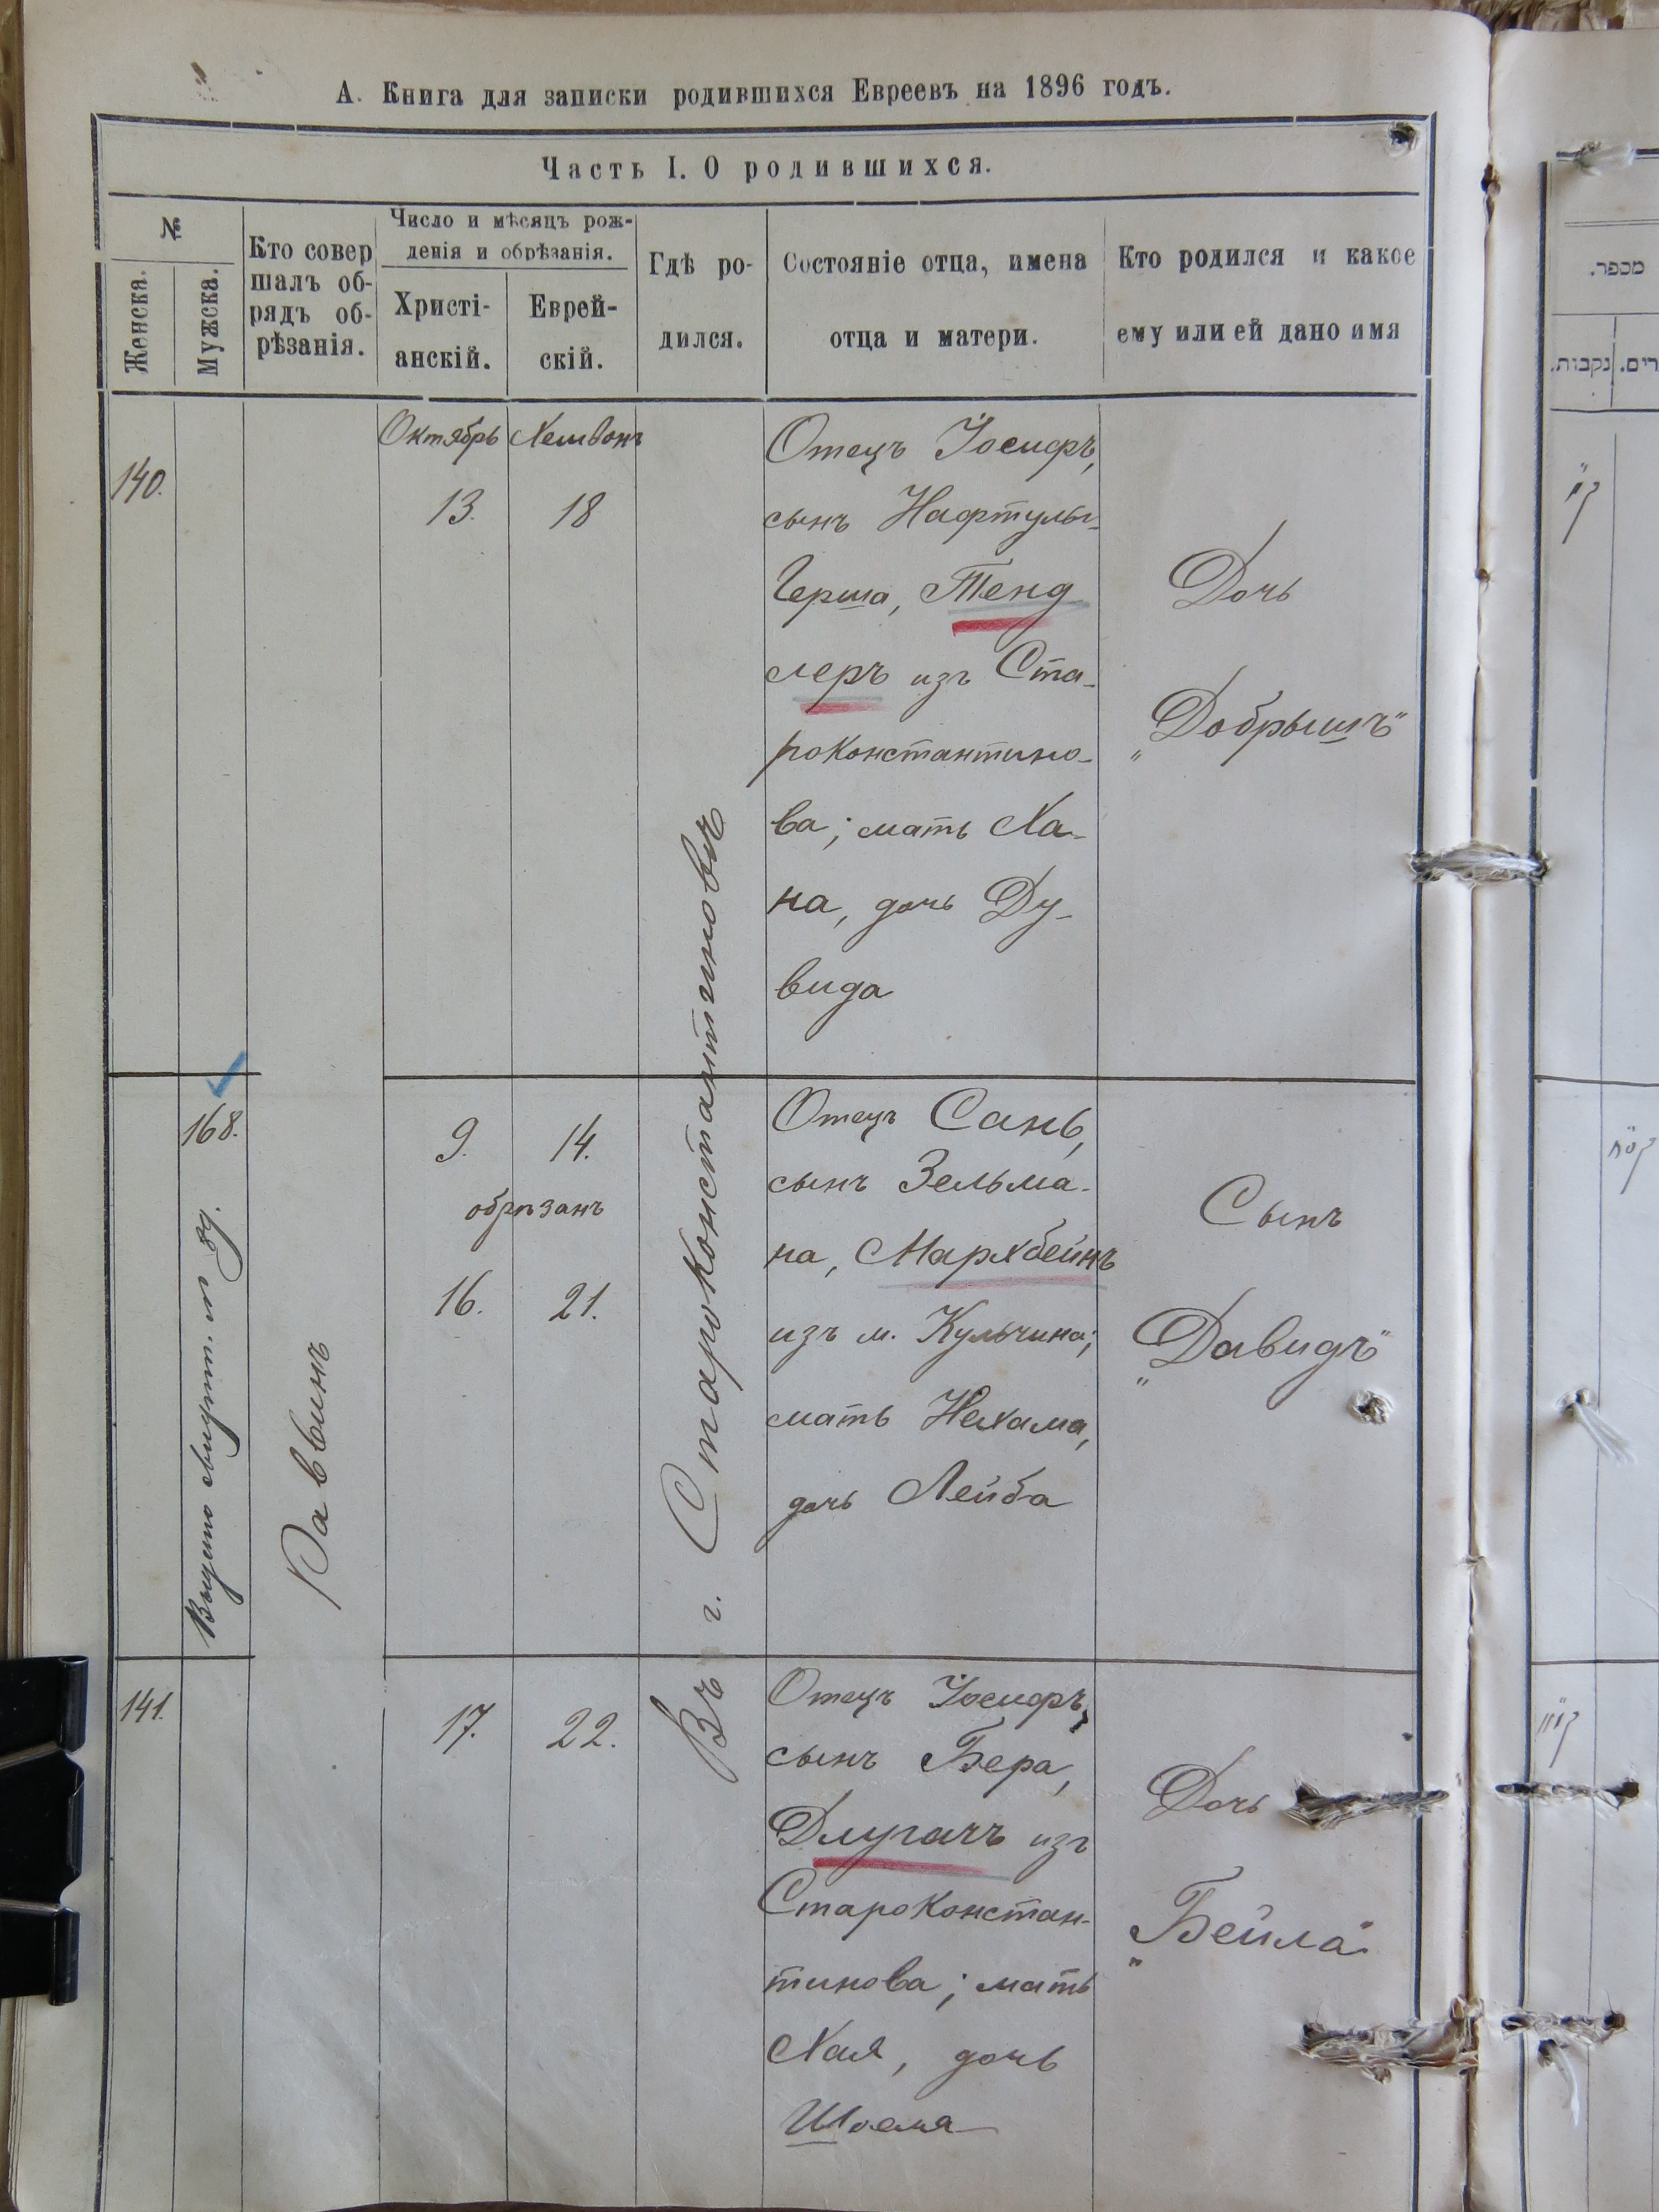 А. Книга для записки родившихся Евреевъ на 1896 годъ.
Часть I. О родившихся.
№
Женска.
Мужска.
Кто совер
шалъ об-
рядъ об-
рѣзанія.
Число и мѣсяцъ рож-
денія и обрѣзанія.
Христі-
анскій.
Еврей-
скій.
Гдѣ ро-
дился.
Состояніе отца, имена
отца и матери.
Кто родился и какое
ему или ей дано имя
140.
Октябрь
13.
Хешвонъ
18
Отецъ Іосифъ,
сынъ Нафтулы-
Герша, Тенд
леръ изъ Ста-
роконстантино-
ва; мать Ха-
на, дочь Ду-
вида
Дочь
„Добрышъ“
168.
Выдано свидѣт. № 89.
Раввинъ
9. 14.
обрѣзанъ
16. 21.
Въ г. Староконстантиновѣ
Отецъ Сань,
сынъ Зельма-
на, Мархбейнъ
изъ м. Кульчина;
мать Нехама,
дочь Лейба
Сынъ
„Давидъ“
141.
17. 22.
Отецъ Іосифъ,
сынъ Бера,
Длугачъ изъ
Староконстан-
тинова; мать
Хая, дочь
Шоеля
Дочь
„Бейла“
מספר.
נקבות.
רים.
ק״מ
קס״ח
קמ״א